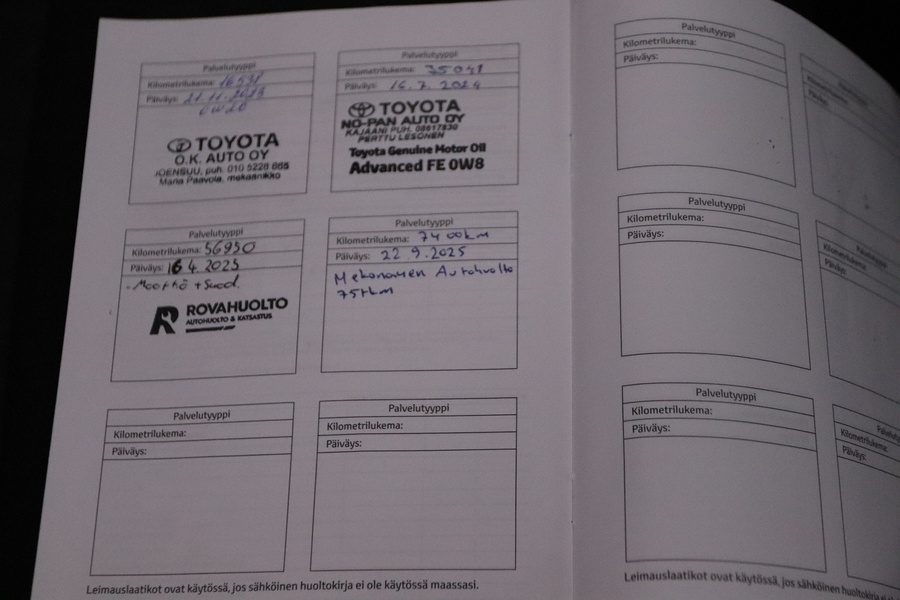 Palvelutyyppi
Kilometrilukema: 16531
Päiväys: 21.11.2023
0W20
TOYOTA
O.K. AUTO OY
JOENSUU, puh. 010 5226 865
Maria Paavola, mekaanikko
Palvelutyyppi
Kilometrilukema: 35041
Päiväys: 16.7.2024
TOYOTA
NO-PAN AUTO OY
KAJAANI PUH. 08617830
PERTTU LESONEN
Toyota Genuine Motor Oil
Advanced FE 0W8
Palvelutyyppi
Kilometrilukema: 56950
Päiväys: 16 4. 2025
ROVAHUOLTO
AUTOHUOLTO & KATSASTUS
Palvelutyyppi
Kilometrilukema:
Päiväys: 22.9.2025
Mekonomen Autohuolto
75tkm
Palvelutyyppi
Kilometrilukema:
Päiväys:
Palvelutyyppi
Kilometrilukema:
Päiväys:
Leimauslaatikot ovat käytössä, jos sähköinen huoltokirja ei ole käytössä maassasi.
Palvelutyyppi
Kilometrilukema:
Päiväys:
Kilometrilukema:
Päiväys:
Palvelutyyppi
Kilometrilukema:
Päiväys:
Palvelutyyppi
Kilometrilukema:
Päiväys:
Palvelutyyppi
Kilometrilukema:
Päiväys:
Kilometrilukema:
Päiväys:
Leimauslaatikot ovat käytössä, jos sähköinen huoltokirja ei ole